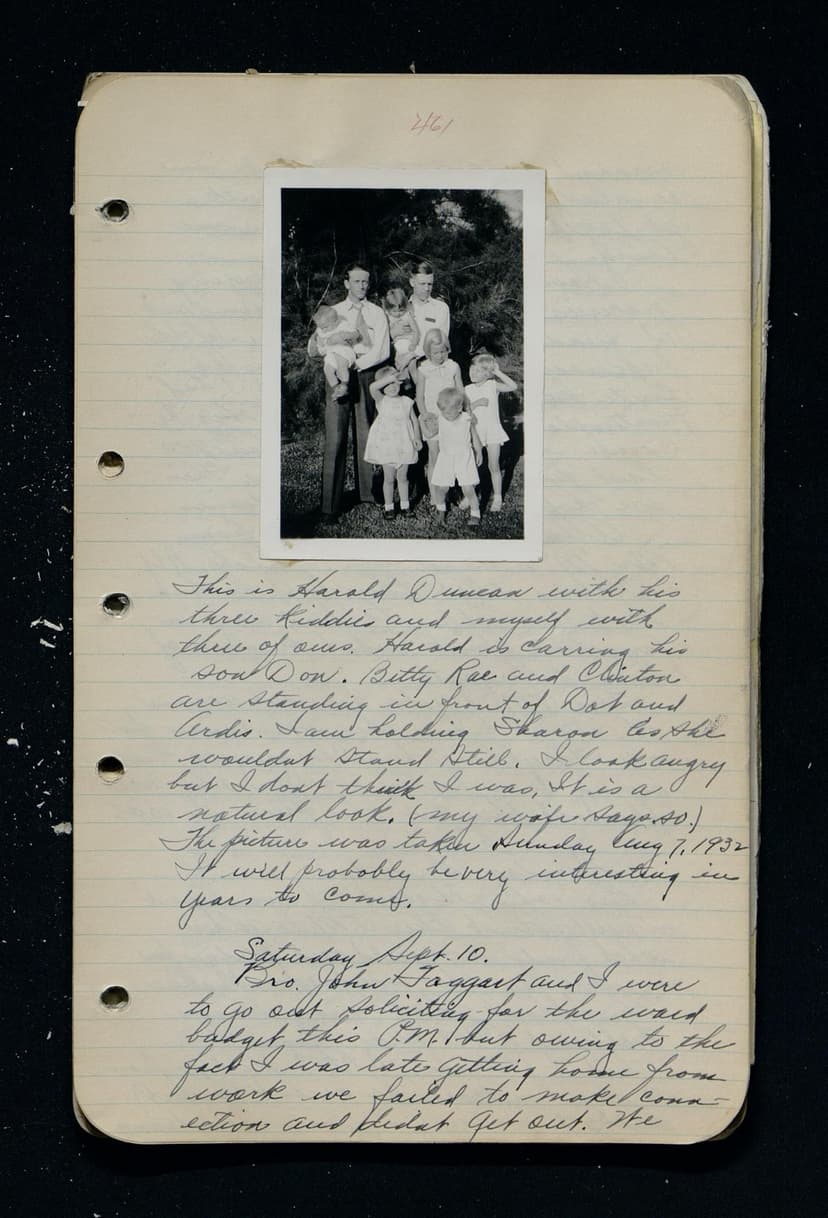 461
This is Harold Duncan with his
three kiddies and myself with
three of ours. Harold is carring his
son Don. Betty Rae and Clinton
are standing in front of Dot and
Ardis. I am holding Sharon as she
wouldnt stand still. I look angry
but I dont think I was, It is a
natural look. (my wife says so.)
The picture was taken Sunday Aug 7, 1932
It will probably be very interesting in
years to come.
Saturday Sept. 10.
Bro. John Taggart and I were
to go out soliciting for the ward
budget this P.M. but owing to the
fact I was late getting home from
work we failed to make conn-
ection and didnt get out. We